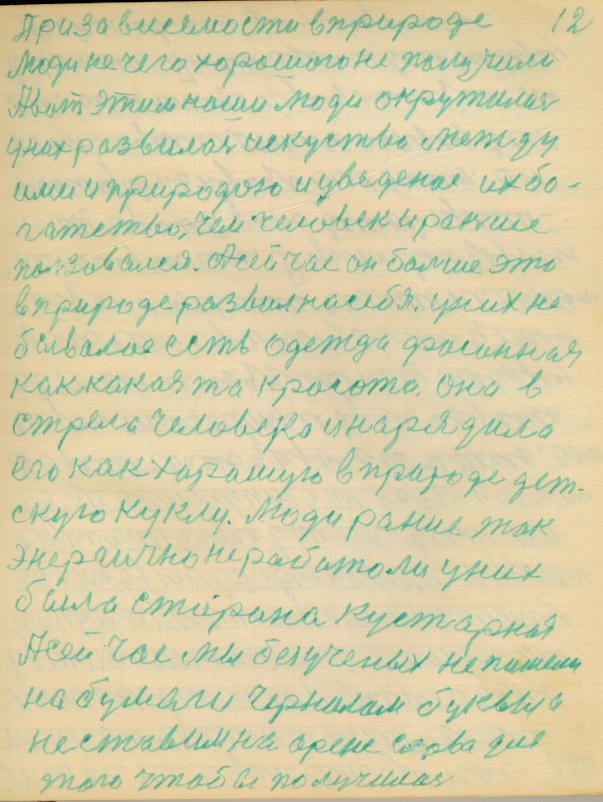 12
При зависемости в природе
люди не чего хорошого не получили
А вот этим наши люди окружилися
у них развилося искуство между
ими и природою и уведеное их бо-
гатство, чем человек и раньше
ползовался. А сейчас он больше это
в природе развил на себя. у них не
бывалое есть одежда фасонная
как какая та красота. она в
стрела человека и нарядила
его как харашую в природе дет-
скую куклу. Люди ранше так
энергично не работали у них
была старана кустарная
А сейчас мы без ученых не пишем
на бумаги чернилам буквы а
не ставим на арене слова для
того чтобы получился